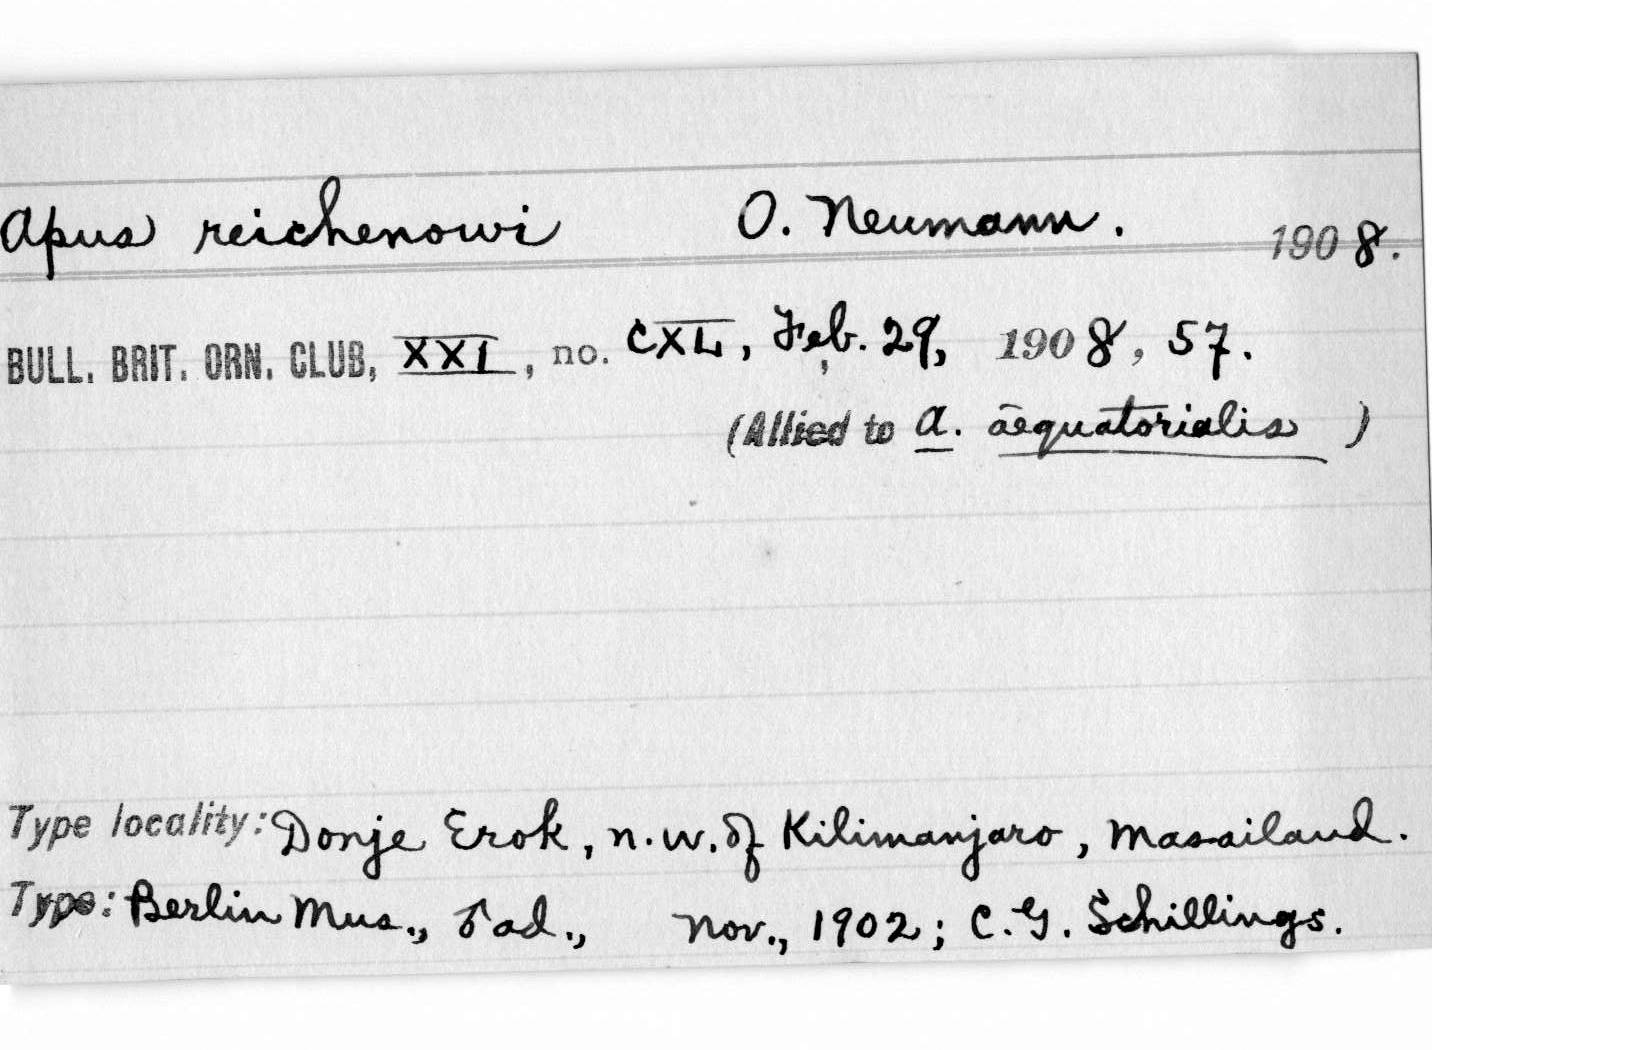 Apus reichenowi O. Neumann. 1908.
BULL. BRIT. ORN. CLUB, XXI, no. CXL, Feb. 29, 1908, 57.
(Allied to A. aequatorialis )
Type locality: Donje Erok, n.w. of Kilimanjaro, Masailand.
Type: Berlin Mus., ♂ ad., Nov., 1902; C. G. Schillings.